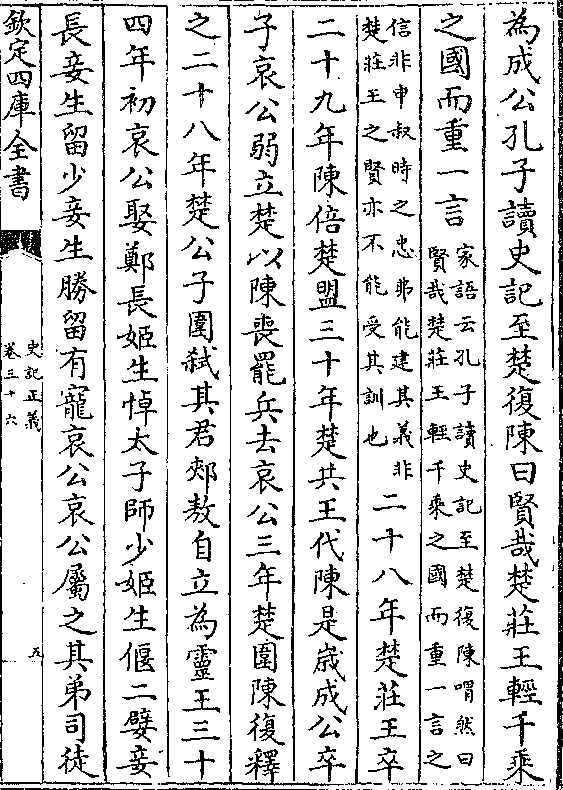 為成公孔子讀史記至楚復陳曰賢哉楚莊王輕千乘
之國而重一言
家語云孔子讀史記至楚復陳喟然曰
賢哉楚莊王輕千乘之國而重一言之
信非申叔時之忠弗能建其義非
楚莊王之賢亦不能受其訓也
二十八年楚莊王卒
二十九年陳倍楚盟三十年楚共王伐陳是歲成公卒
子哀公弱立楚以陳喪罷兵去哀公三年楚圍陳復釋
之二十八年楚公子圍弒其君郟敖自立為靈王三十
四年初哀公娶鄭長姬生悼太子師少姬生偃二嬖妾
長妾生留少妾生勝留有寵哀公哀公屬之其弟司徒
欽定四庫全書
史記正義
卷三十六
五